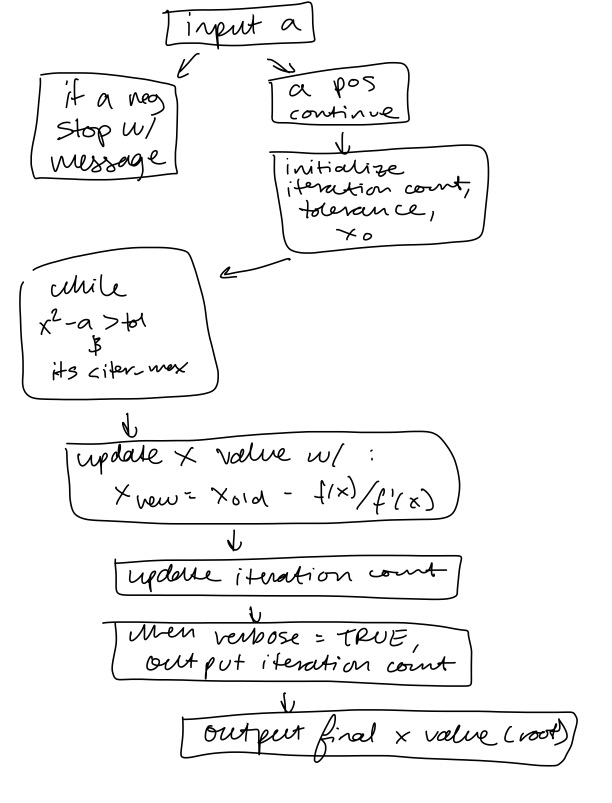 input a
if a neg
stop w/
message
a pos
continue
initialize
iteration count,
tolerance,
x₀
while
x²-a > tol
&
its < iter_max
update x value w/ :
x new = x old - f(x)/f'(x)
update iteration count
when verbose = TRUE,
output iteration count
output final x value (root)